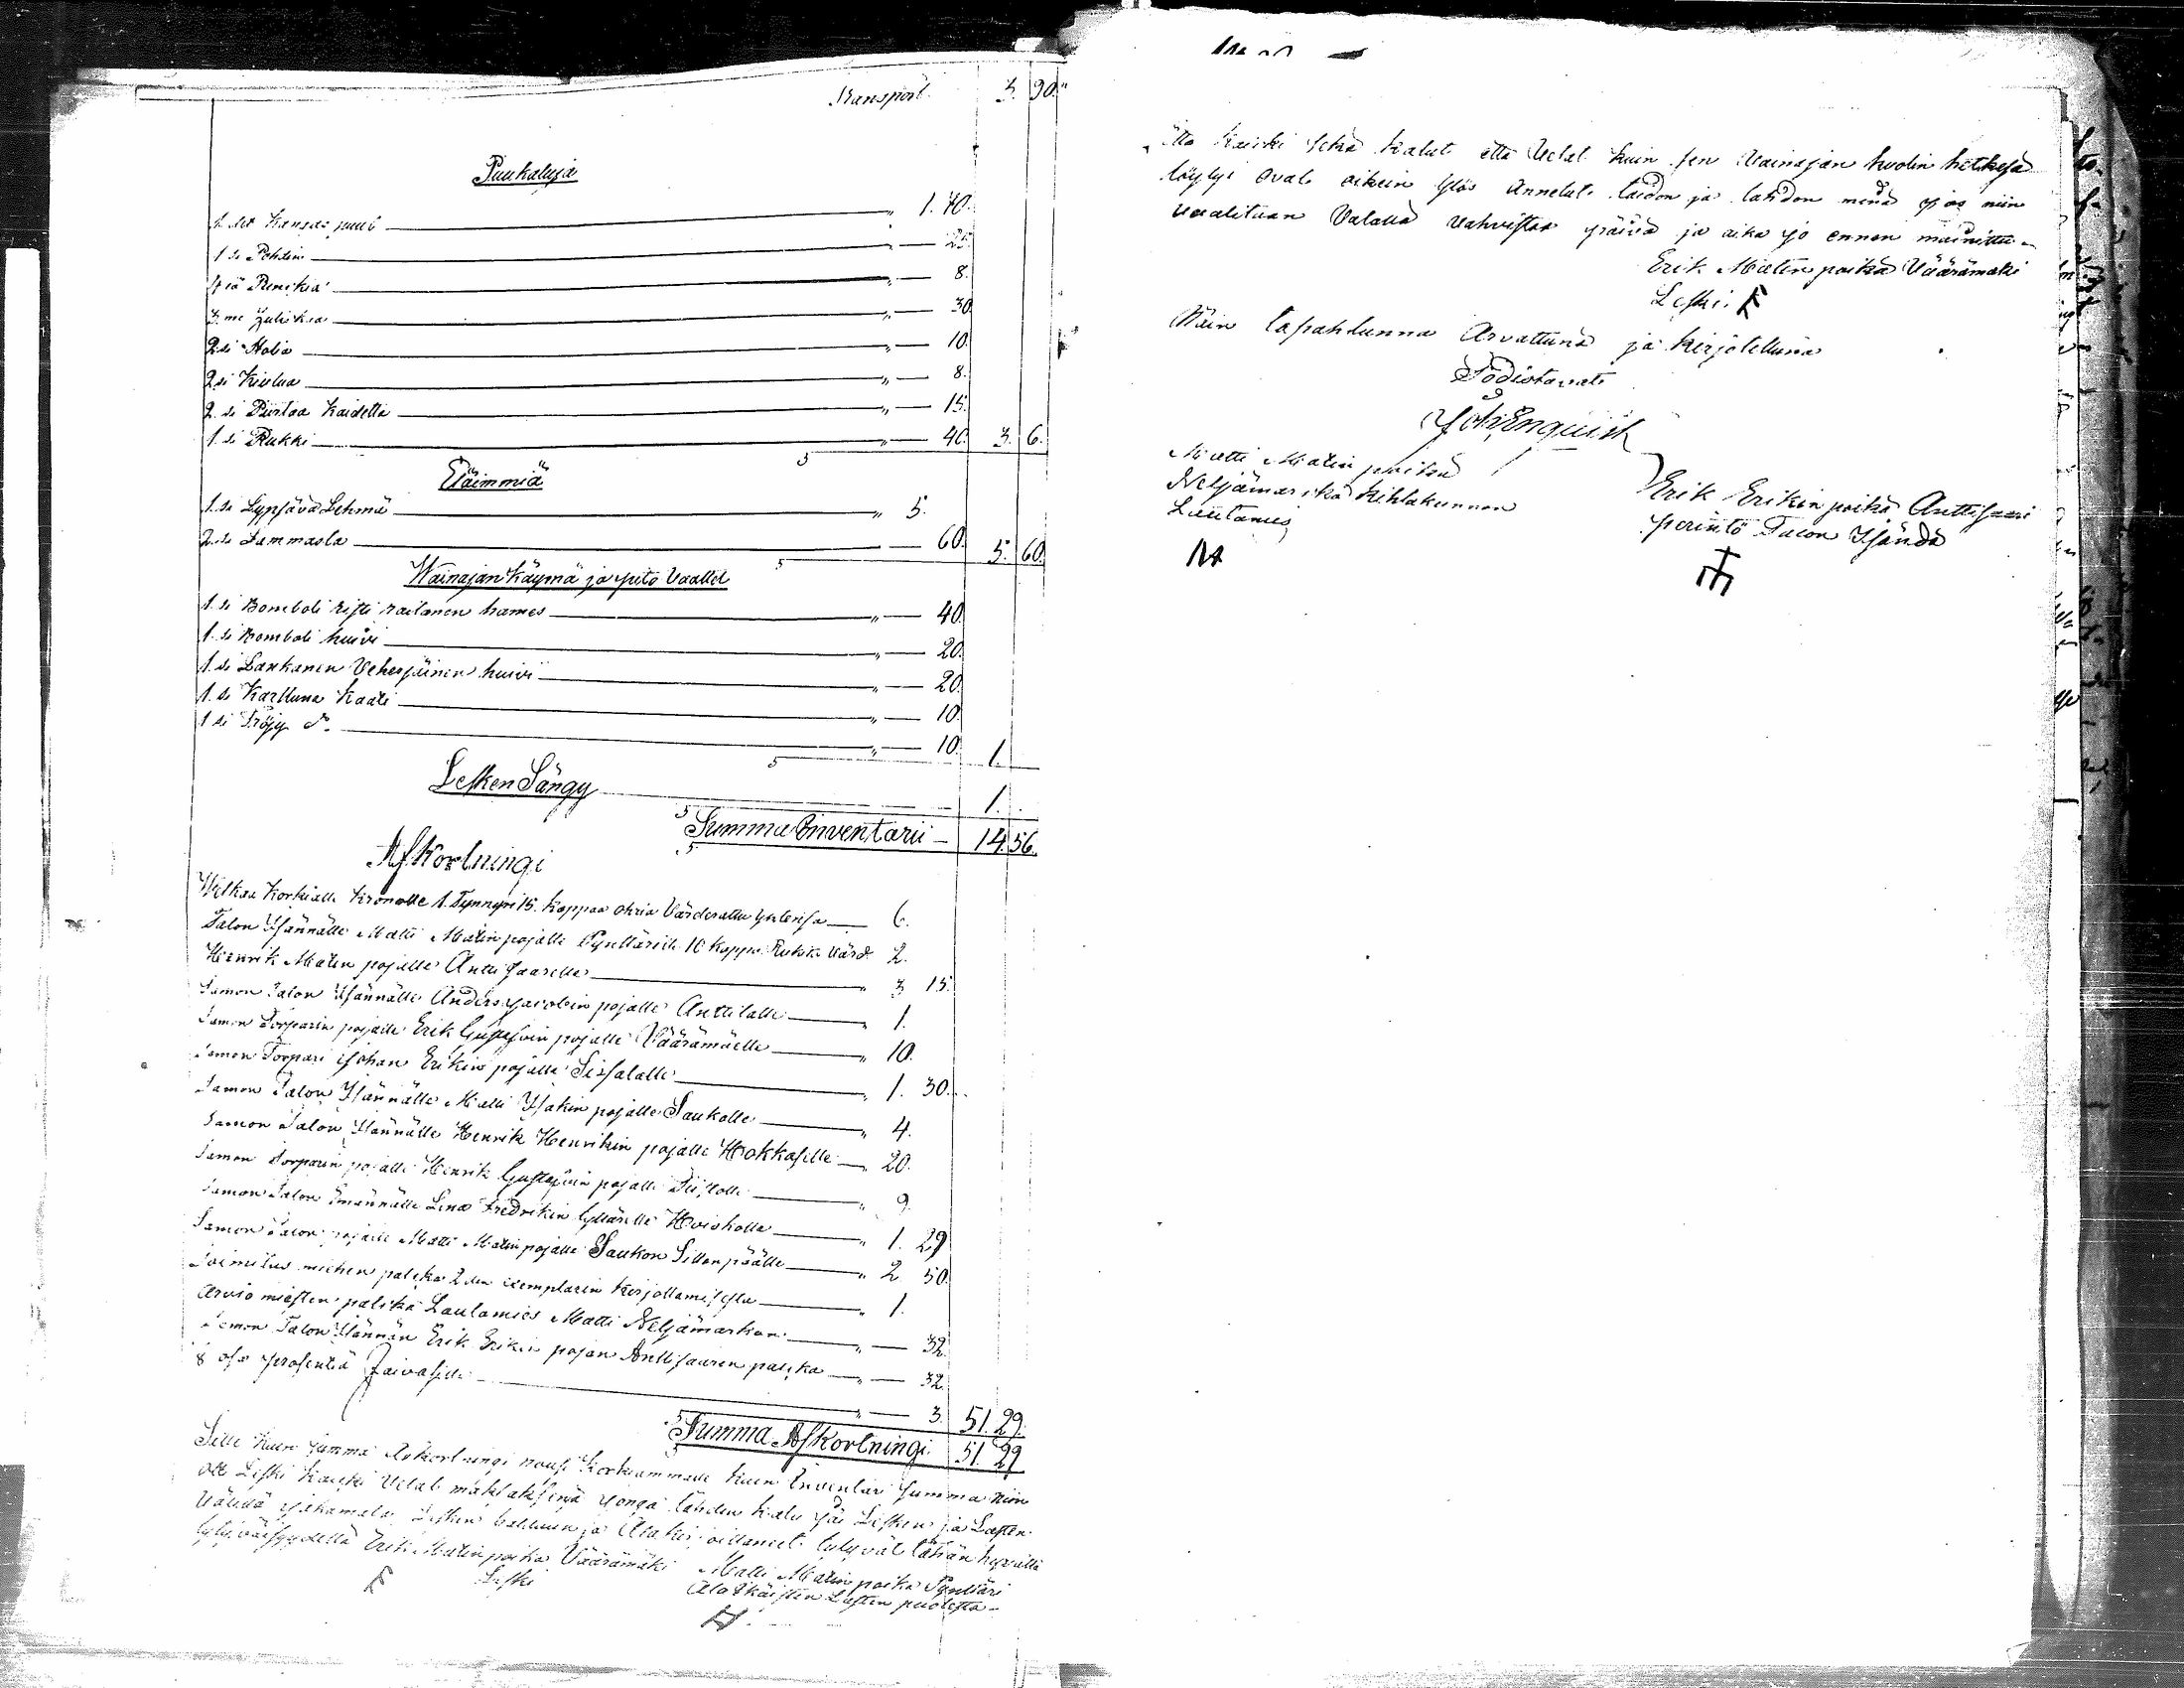 Transport. 3. 90.
Puukaluja
1. Kangas puut " 1. 40.
1. si Pöhsin " 25.
Piä " 8.
3. me " 30.
2. si " 10.
2. si Kiulua " 8.
2. si Piirtaa Kaidetta " 15.
1. si Rukki " 40. 3. 6.
Eläimmiä
1. si Lypsävä Lehmä " 5.
2. si Lammasta 60. 5. 60.
Wainajan Käymä ja pito Vaattet
1. si Bomboli risti raitanen hames " 40.
1. si Bomboli huivi " 20.
1. si Lankanen Veheriäinen huivi " 20.
1. si Karttuna Kaati " 10.
1. si Tröijy " 10. 1.
Lesken Sängy 1.
Summa Inventarii 14. 56.
Afkortningi
Welkaa Korkialle Kronolle 1. Tynnyri 15. Kappaa ohria Värderattu 6.
Talon Ysännälle Matti Matin pojalle Pynttärille 10 Kappa Rukita värd. 2.
Henrik Matin pojalle Anttisaarelle " 3 15.
Samon Talon Ysännälle Anders Jacobin pojalle Anttilalle " 1.
Samon Torparin pojalle Erik Gustafvin pojalle Väärämäelle " 10.
Samon Torpari Johan Erikin pojalle " 1. 30.
Samon Talon Ysännälle Matti Ysakin pojalle Saukolle " 4.
Samon Talon Ysännälle Henrik Henrikin pojalle Hokkaselle 20.
Samon Torparin pojalle Henrik Gustafvin pojalle " 9.
Samon Talon Emännälle Lina Fredrikin tyttärelle " 1. 29
Samon Talon pojalle Matti Matin pojalle Saukon Sillanpäälle " 2 50.
Toimitus miehen palcka 2 sen exemplarin Kirjottamisesta " 1.
Arvio miesten palcka Lautamies Matti Neljämarkan " 32.
Samon Talon Ysännän Erik Erikin pojan Anttisaaren palcka " 32.
1/8 osa prosentiä Vaivasille " 3. 51. 29.
Summa Afkortningi. 51. 29
Sille kuin summa Afkortningi nousi Korkiammalle kuin Inventari summa niin
ott Leski Kaicki Velat maksaksensa jonga tähden kalu jää Lesken ja Lasten
välillä jakamata Lesken ja tytyvät tähän hyvällä
tytyväisyydellä Erik Matin poika Väärämäki Matti Matin poika Pynttäri
Leski Ala Ikäisten Lasten puolesta

Että Kaicki sekä kalut että Velat kuin sen Vainajan kuolin hetkesä
löytyi ovat oikein ylös Annetut taidon ja tahdon minä jos niin
vaaditaan Valalla vahvistaa päivä ja aika jo ennen mainittu.
Erik Matin poika Väärämäki
Leski.
Näin tapahtunna Arvattuna ja kirjotettuna
Todistavat
Joh: Enquist
Matti Matin poika
Neljämarkka Kihlakunnan
Lautamies
Erik Erikin poika Anttisaari
perintö Talon Ysändä